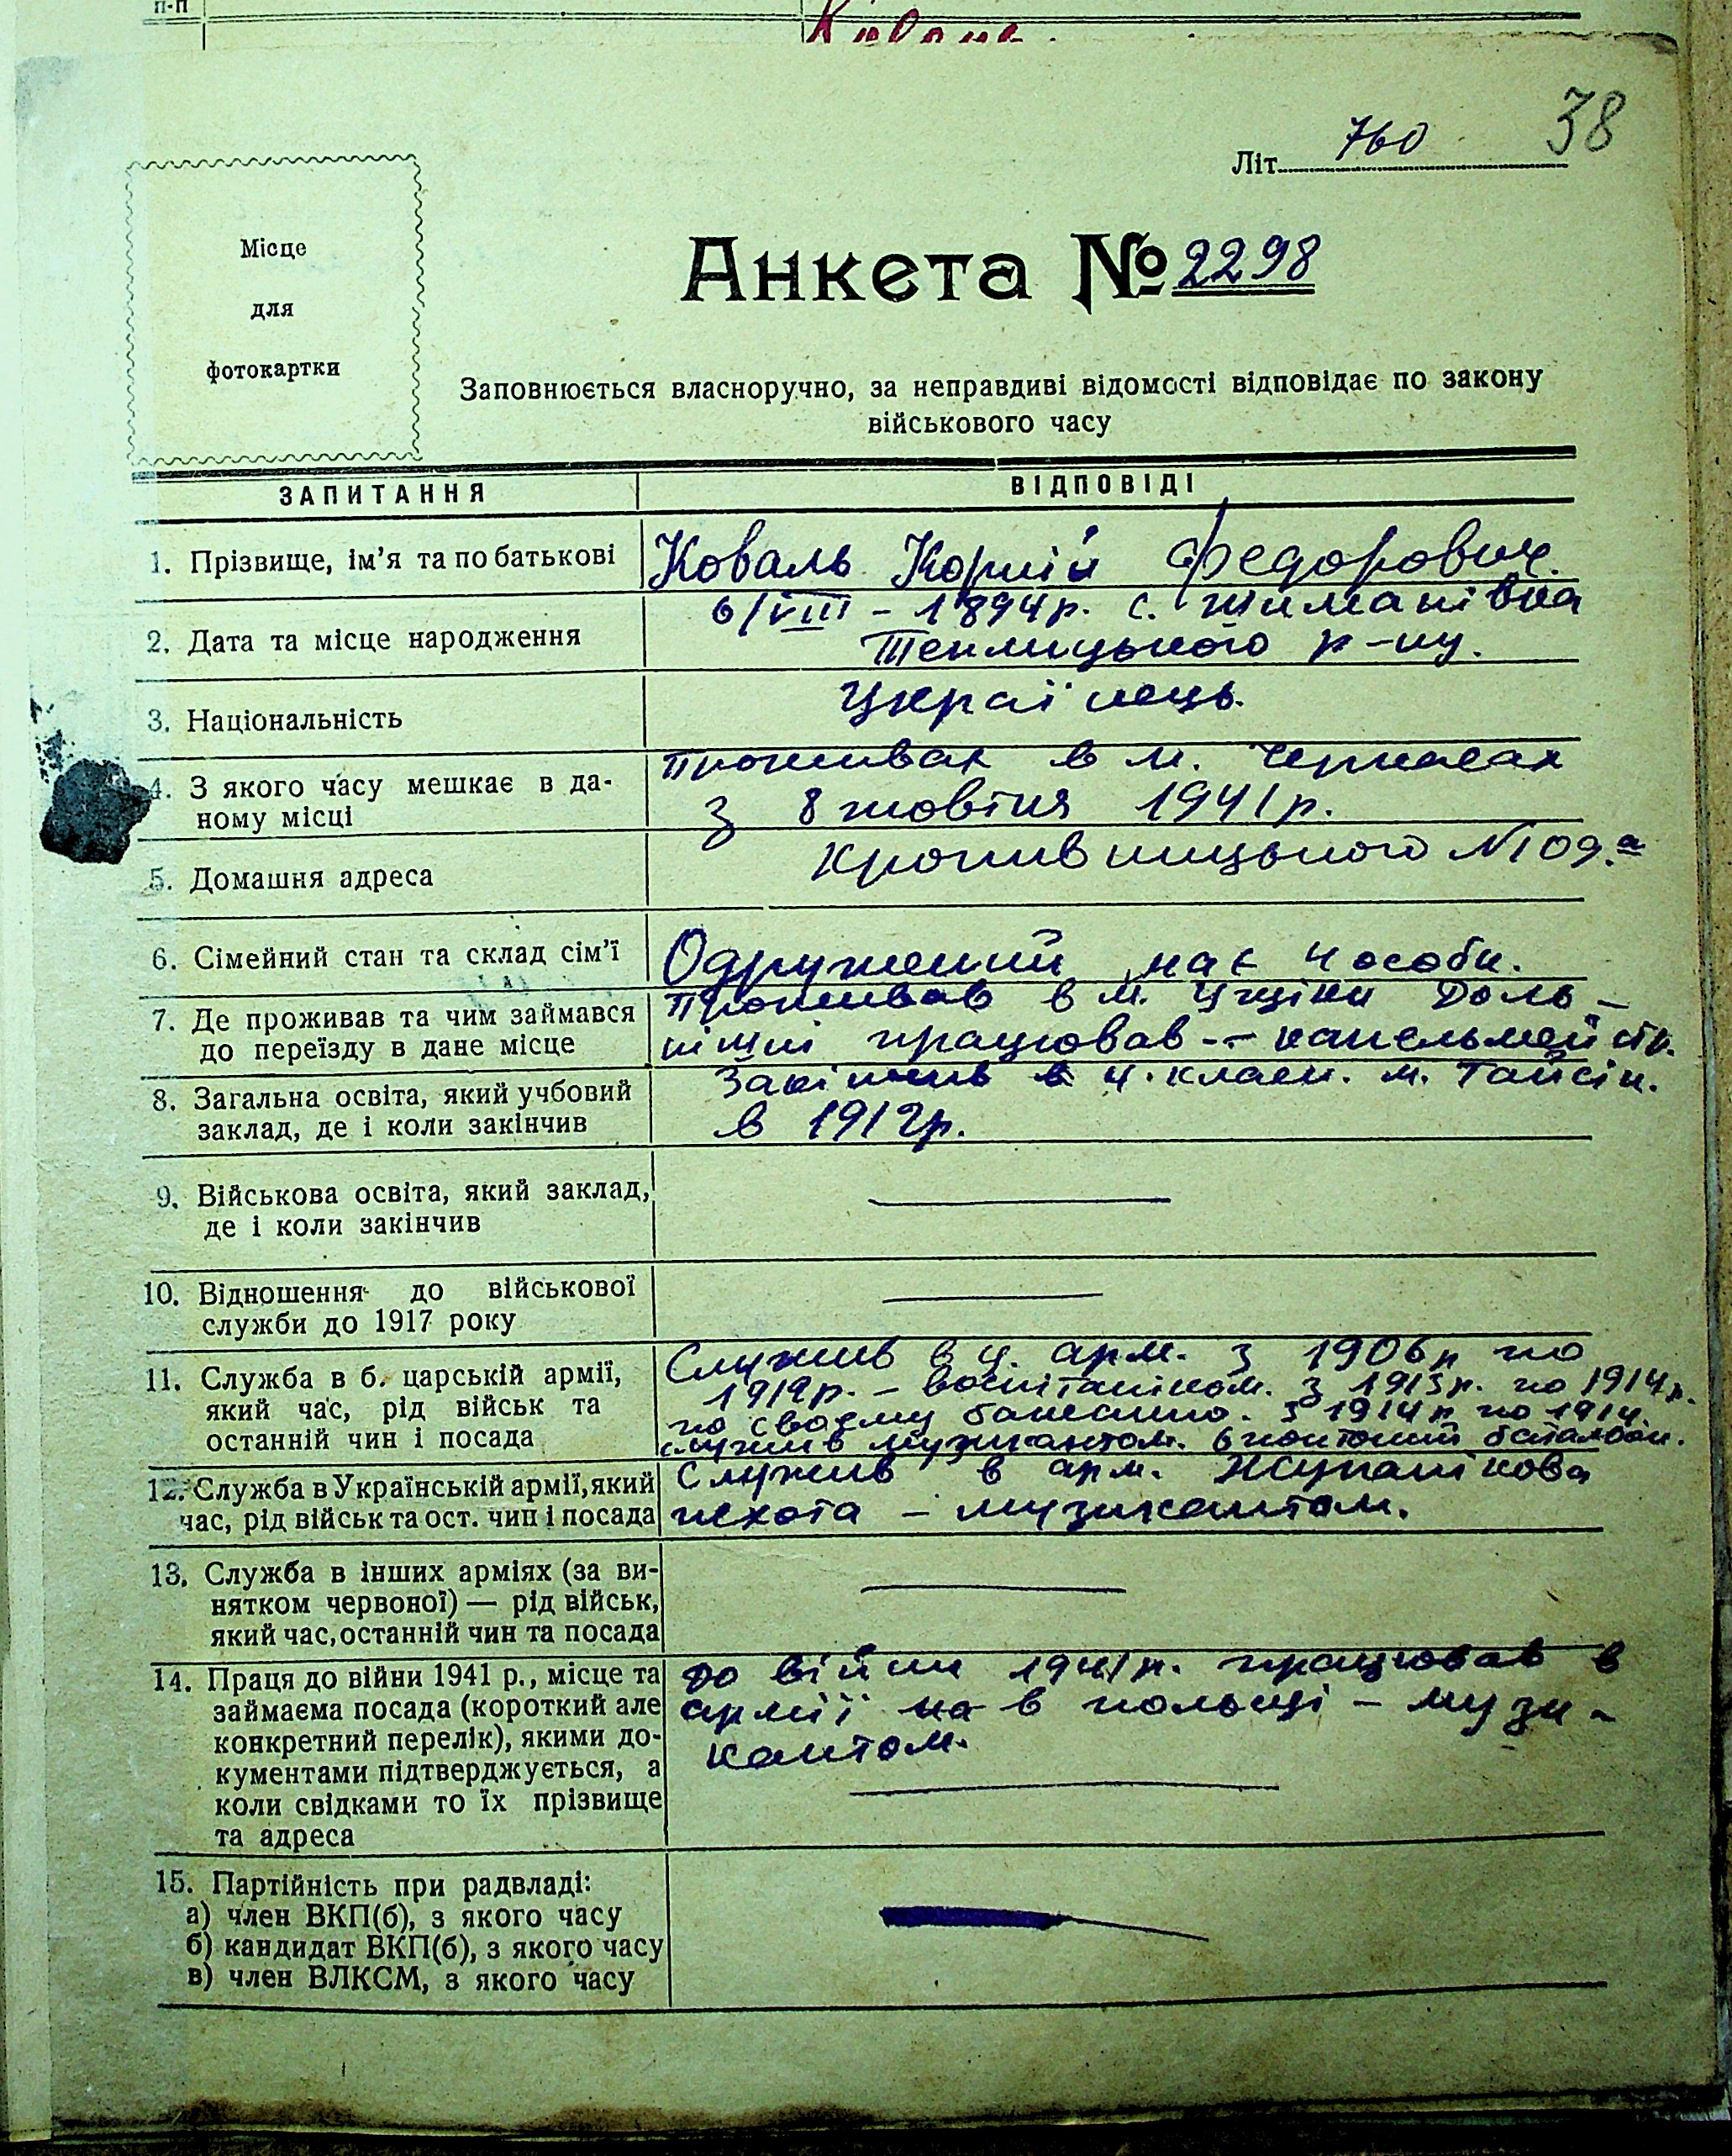 п-п
38
Літ. 760
Місце
для
фотокартки
Анкета № 2298
Заповнюється власноручно, за неправдиві відомості відповідає по закону
військового часу
ЗАПИТАННЯ
ВІДПОВІДІ
1. Прізвище, ім'я та по батькові
Коваль Корній Федорович.
2. Дата та місце народження
6/VIII - 1894 р. с.
Теплицького р-ну.
3. Національність
Українець.
4. З якого часу мешкає в да-
ному місці
Проживає в м. Черкасах
з 8 жовтня 1941 р.
5. Домашня адреса
Кропивницького N 109.а
6. Сімейний стан та склад сім'ї
Одружений має 4 особи.
7. Де проживав та чим займався
до переїзду в дане місце
Проживав в м.
працював -- капельмейстр.
8. Загальна освіта, який учбовий
заклад, де і коли закінчив
Закінчив в 4. класн. м. Гайсін.
в 1912 р.
9. Військова освіта, який заклад,
де і коли закінчив
10. Відношення до військової
служби до 1917 року
11. Служба в б. царській армії,
який час, рід військ та
останній чин і посада
Служив в ц. арм. з 1906 р по
1912 р. - воспітаніком. з 1913 р. по 1914 р.
по своєму з 1914 р по 1914.
служив музикантом. 6 понтоний баталіон.
12. Служба в Українській армії, який
час, рід військ та ост. чин і посада
Служив в арм. Жупанікова
пєхота - музикантом.
13. Служба в інших арміях (за ви-
нятком червоної) — рід військ,
який час, останній чин та посада
14. Праця до війни 1941 р., місце та
займаєма посада (короткий але
конкретний перелік), якими до-
кументами підтверджується, а
коли свідками то їх прізвище
та адреса
до війни 1941 р. працював в
армії на в польщі - музи-
кантом.
15. Партійність при радвладі:
а) член ВКП(б), з якого часу
б) кандидат ВКП(б), з якого часу
в) член ВЛКСМ, з якого часу